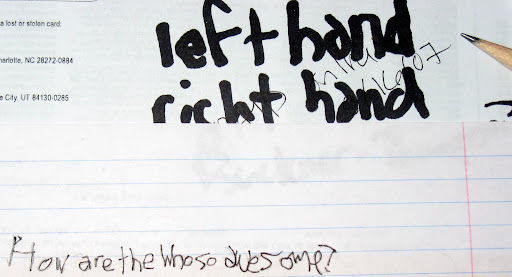 a lost or stolen card:
left hand
harlotte, NC 28272-0884
right hand
e City, UT 84130-0285
How are the Who so awesome?